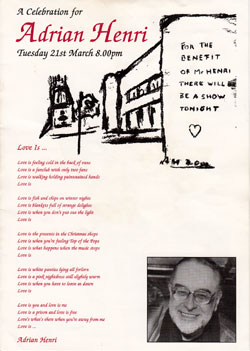 A Celebration for
Adrian Henri
Tuesday 21st March 8.00pm
FOR THE
BENEFIT
OF Mr HENRI
THERE WILL
BE A SHOW
TONIGHT
Love Is ...
Love is feeling cold in the back of vans
Love is a fanclub with only two fans
Love is walking holding paintstained hands
Love is
Love is fish and chips on winter nights
Love is blankets full of strange delights
Love is when you don't put out the light
Love is
Love is the presents in the Christmas shops
Love is when you're feeling Top of the Pops
Love is what happens when the music stops
Love is
Love is white panties lying all forlorn
Love is a pink nightdress still slightly warm
Love is when you have to leave at dawn
Love is
Love is you and love is me
Love is a prison and love is free
Love's what's there when you're away from me
Love is ...
Adrian Henri